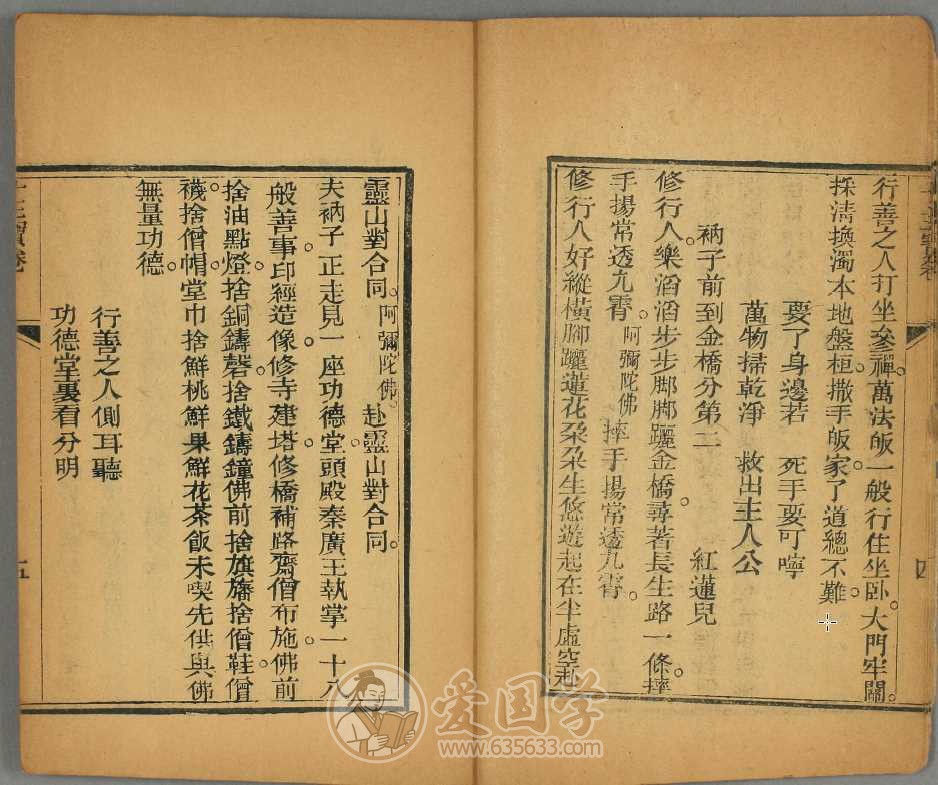 行善之人打坐參禪。萬法皈一般行住坐卧。大門牢關。
採清換濁本地盤桓。撒手皈家了道總不難。
要了身邊若　死手要可嚀
萬物掃乾淨　救出主人公
衲子前到金橋分第二　紅蓮兒
修行人。樂滔滔步步脚脚躧金橋。尋著長生路一條。摔
手揚常透九霄。阿彌陀佛　摔手揚常透九霄。
修行人好縱橫脚躧蓮花朶朶生悠遊起在半虛空赴
四
靈山對合同。阿彌陀佛。赴靈山對合同。
夫衲子正走見一座功德堂頭殿秦廣王執掌一十八
般善事。印經造像。修寺建塔。修橋補路。齋僧布施佛前
捨油點燈。捨銅鑄磬。捨鐵鑄鐘佛前捨旗旛捨僧鞋。僧
襪。捨僧帽。堂巾捨鮮桃鮮果鮮花茶飯未喫先供與佛
無量功德。
行善之人側耳聽
功德堂裏看分明
王寶卷
五
爱国学
www.635633.com